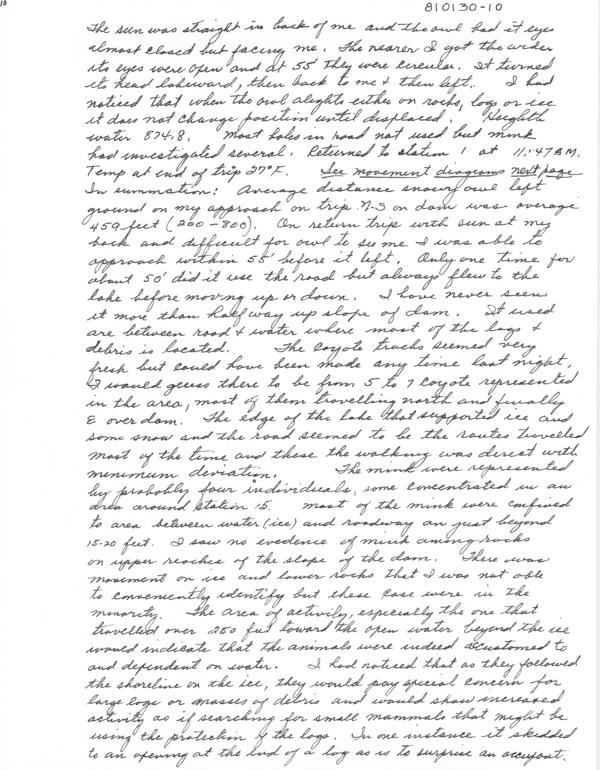 10
810130-10
The sun was straight in back of me and the owl had it eyes
almost closed but facing me. The nearer I got the wider
its eyes were open and at 55' they were circular. It turned
its head lakeward, then back to me & then left. I had
noticed that when the owl alights either on rocks, logs or ice
it does not change position until displaced. Heighth
water 874.8. Most holes in road not used but mink
had investigated several. Returned to station 1 at 11:47 A.M.
Temp at end of trip 27°F. See movement diagrams next page
In summation: Average distance snowy owl left
ground on my approach on trip N-S on dam was average
459 feet (200-800). On return trip with sun at my
back and difficult for owl to see me I was able to
approach within 55' before it left. Only one time for
about 50' did it use the road but always flew to the
lake before moving up or down. I have never seen
it more than half way up slope of dam. It used
are between road & water where most of the logs &
debris is located. The coyote tracks seemed very
fresh but could have been made any time last night.
I would guess there to be from 5 to 7 coyote represented
in the area, most of them travelling north and finally
E over dam. The edge of the lake that supported ice and
some snow and the road seemed to be the routes travelled
most of the time and these the walking was direct with
minimum deviation. The mink were represented
by probably four individuals, some concentrated in an
area around station 15. Most of the mink were confined
to area between water (ice) and roadway an just beyond
15-20 feet. I saw no evedence of mink among rocks
on upper reaches of the slope of the dam. There was
movement on ice and lower rocks that I was not able
to conveniently identify but these case were in the
minority. The area of activity, especially the one that
travelled over 250 feet toward the open water beyond the ice
would indicate that the animals were indeed accustomed to
and dependent on water. I had noticed that as they followed
the shoreline on the ice, they would pay special concern for
large logs or masses of debris and would show increased
activity as if searching for small mammals that might be
using the protection of the logs. In one instance it skidded
to an opening at the end of a log as is to surprise an occupant.